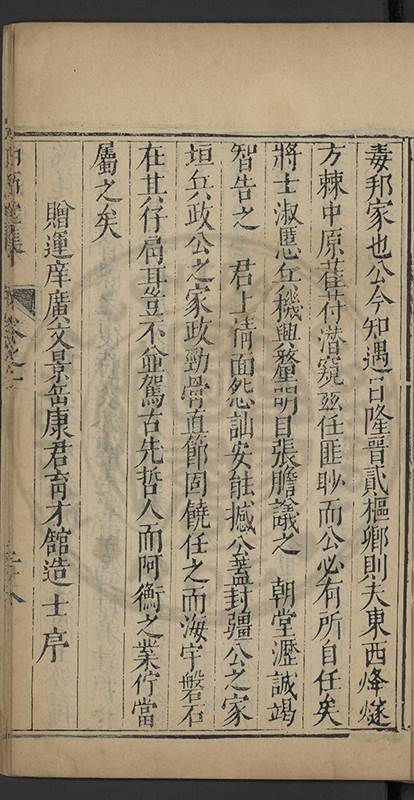 毒邦家也公今知遇日隆晉貳樞鄉則夫東西烽燧
方棘中原萑苻潛窺茲任匪眇而公必有所自任矣
將士淑慝兵機興釐明目張膽議之　朝堂瀝誠竭
智告之　君上情面怨訕安能撼公蓋封疆公之家
垣兵政公之家政勁骨直節固饒任之而海宇磐石
在其仔肩耳豈不並駕古先哲人而阿衡之業佇當
屬之矣
贈運庠廣文景岳康君育才館造士序